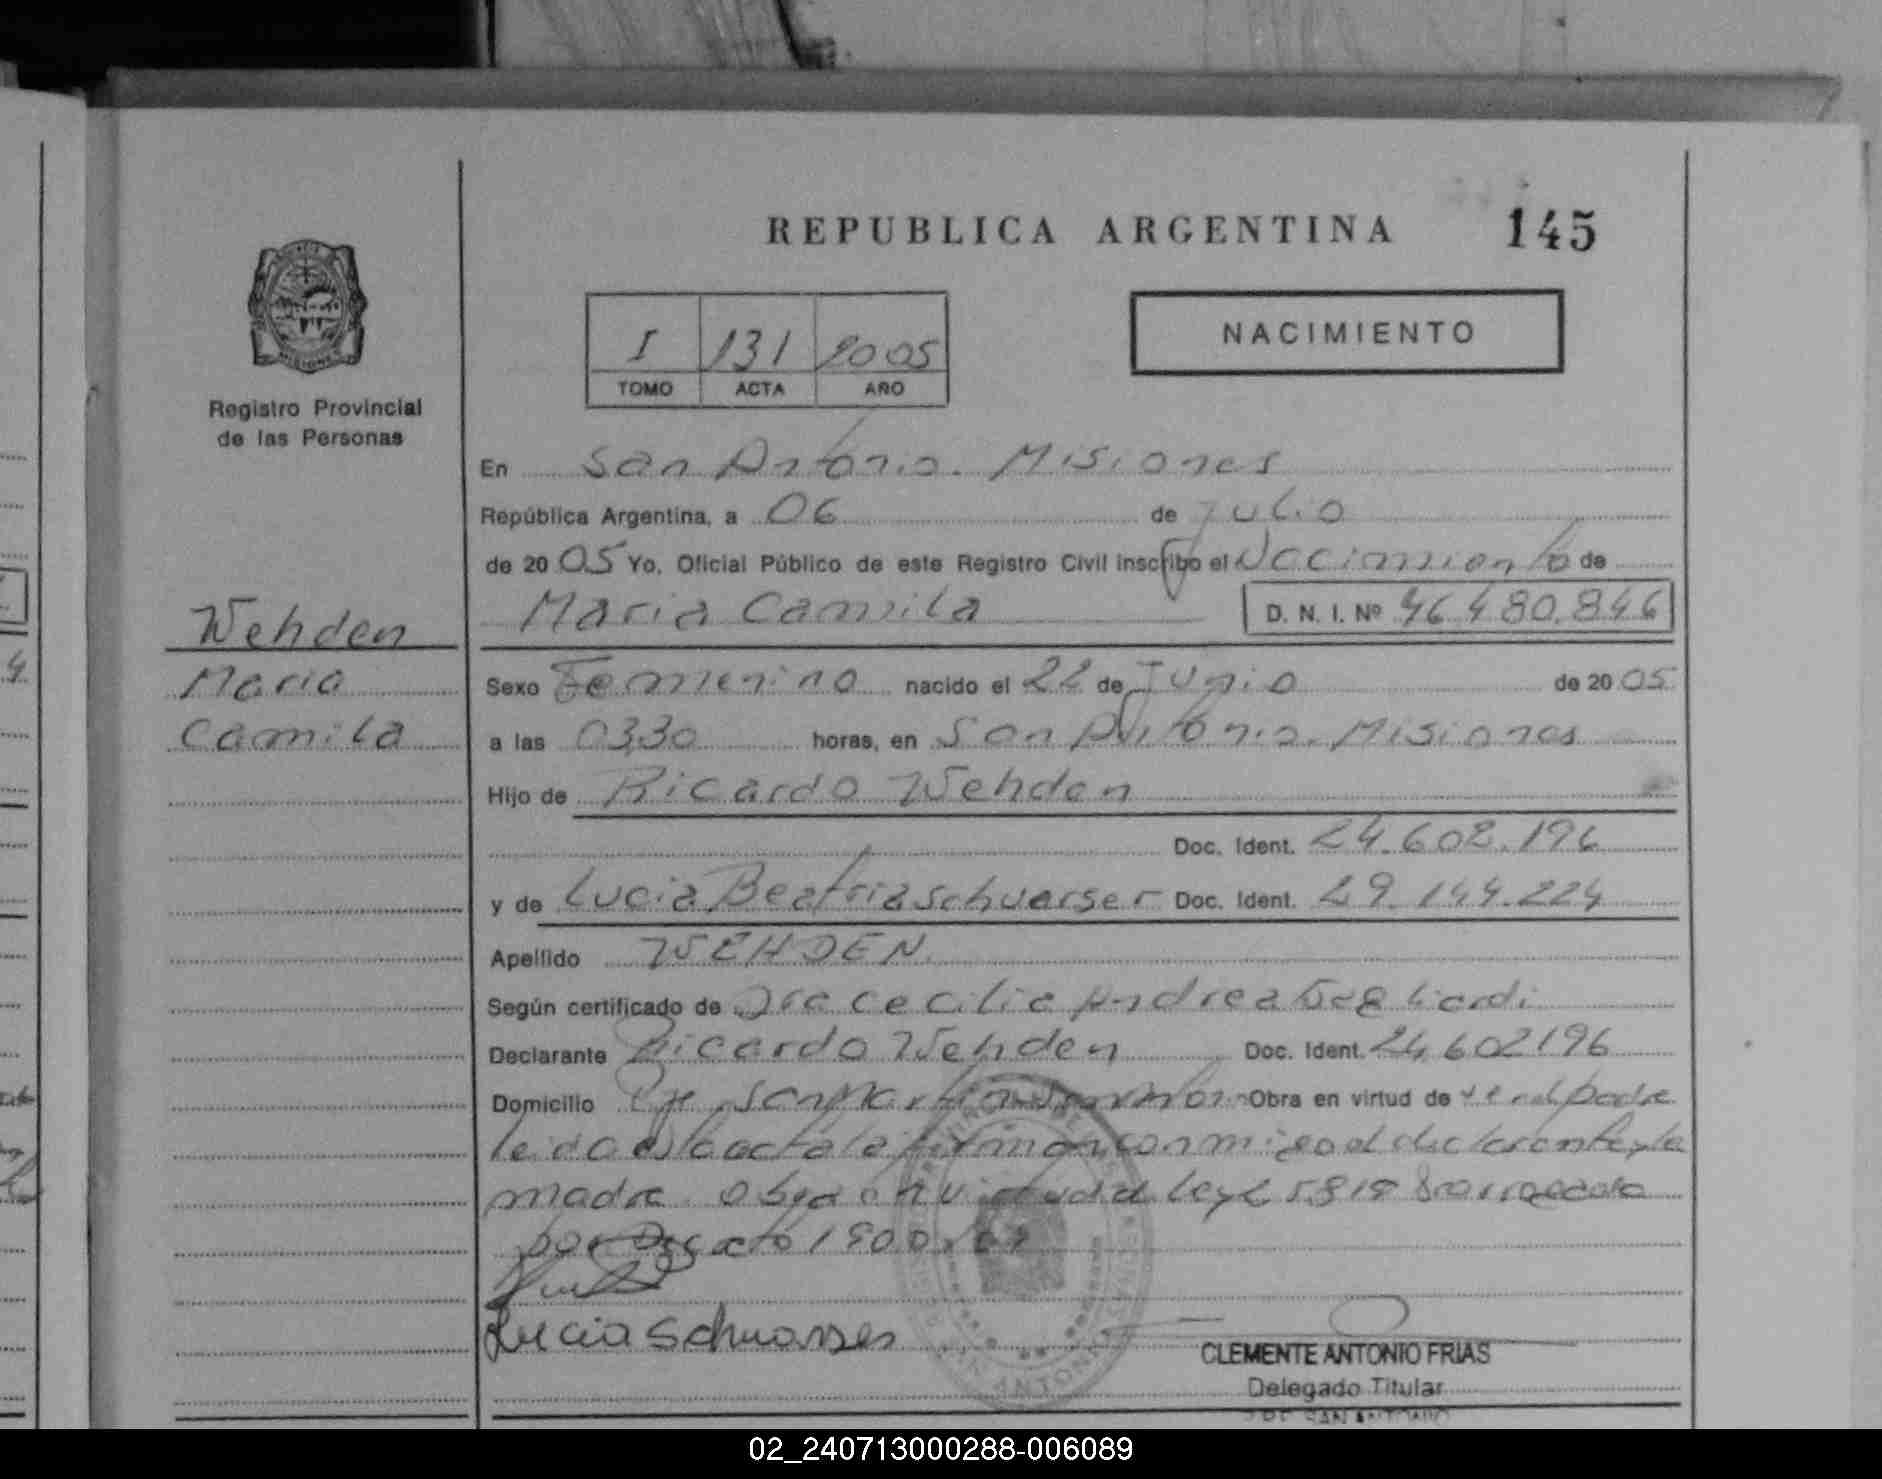 REPUBLICA ARGENTINA 145
I 131 2005
TOMO ACTA AÑO
NACIMIENTO
Registro Provincial
de las Personas
Wehden
Maria
Camila
En San Antonio. Misiones
República Argentina, a 06 de Julio
de 2005 Yo, Oficial Público de este Registro Civil inscribo el Nacimiento de
Maria Camila D. N. I. Nº 46.480.846
Sexo Femenino nacido el 22 de Junio de 2005
a las 0330 horas, en San Antonio. Misiones
Hijo de Ricardo Wehden
Doc. Ident. 24.602.196
y de Lucia Beatriz Schuarser Doc. Ident. 29.144.224
Apellido WEHDEN.
Según certificado de Dra Cecilia Andrea
Declarante Ricardo Wehden Doc. Ident. 24.602196
Domicilio Obra en virtud de padre
leida el acta la firman conmigo el declarante y la
madre obra en virtud
por Decreto
Lucia
CLEMENTE ANTONIO FRIAS
Delegado Titular
SAN ANTONIO
02_240713000288-006089